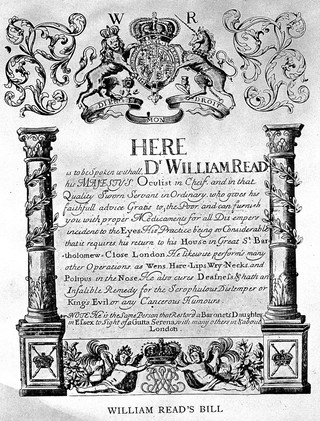 W R
DIEU ET
MON
DROIT
HERE
is to be Spoken withall, Dr WILLIAM READ
his MAJESTYS Oculist in Cheif, and in that
Quality Sworn Servant in Ordinary, who gives his
faithfull advice Gratis to, the Poor, and can furnish
you with proper Medicaments for all Distempers
incident to the Eyes. His Practice being so Considerable
that it requires his return to his House in Great St. Bar
tholomew-Close London. He likewise performs many
other Operations as Wens, Hare-Lips, Wry-Necks, and
Polipus in the Nose. He also cures Deafness, & hath an
Infalible Remedy for the Scrophulous Distemper or
Kings Evil, or any Cancerous Humours
NOTE He is the Same Person that Restor'd a Baronets Daughter
in Essex to Sight of a Gutta Serena, with many others in & about
London.
WILLIAM READ'S BILL